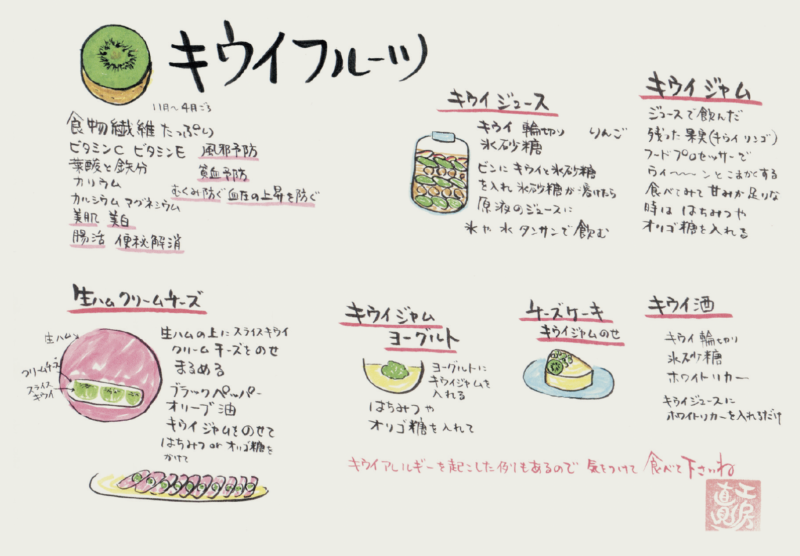 キウイフルーツ
11月〜4月ごろ
食物繊維たっぷり
ビタミンC ビタミンE 風邪予防
葉酸と鉄分 貧血予防
カリウム むくみ防ぐ 血圧の上昇を防ぐ
カルシウム マグネシウム
美肌 美白
腸活 便秘解消
キウイジュース
キウイ輪切り りんご
氷砂糖
ビンにキウイと氷砂糖
を入れ氷砂糖が溶けたら
原液のジュースに
氷や水タンサンで飲む
キウイジャム
ジュースで飲んだ
残った果実(キウイリンゴ)
フードプロセッサーで
ウイ〜〜ンとこまかくする
食べてみて甘みが足りな
時ははちみつや
オリゴ糖を入れる
生ハムクリームチーズ
生ハム
クリームチーズ
スライス
キウイ
生ハムの上にスライスキウイ
クリームチーズをのせ
まるめる
ブラックペッパー
オリーブ油
キウイジャムをのせて
はちみつorオリゴ糖を
かけて
キウイジャム
ヨーグルト
ヨーグルトに
キウイジャムを
入れる
はちみつや
オリゴ糖を入れて
チーズケーキ
キウイジャムのせ
キウイ酒
キウイ輪切り
氷砂糖
ホワイトリカー
キウイジュースに
ホワイトリカーを入れるだけ
キウイアレルギーを起こした例もあるので 気をつけて 食べて下さいね
工房